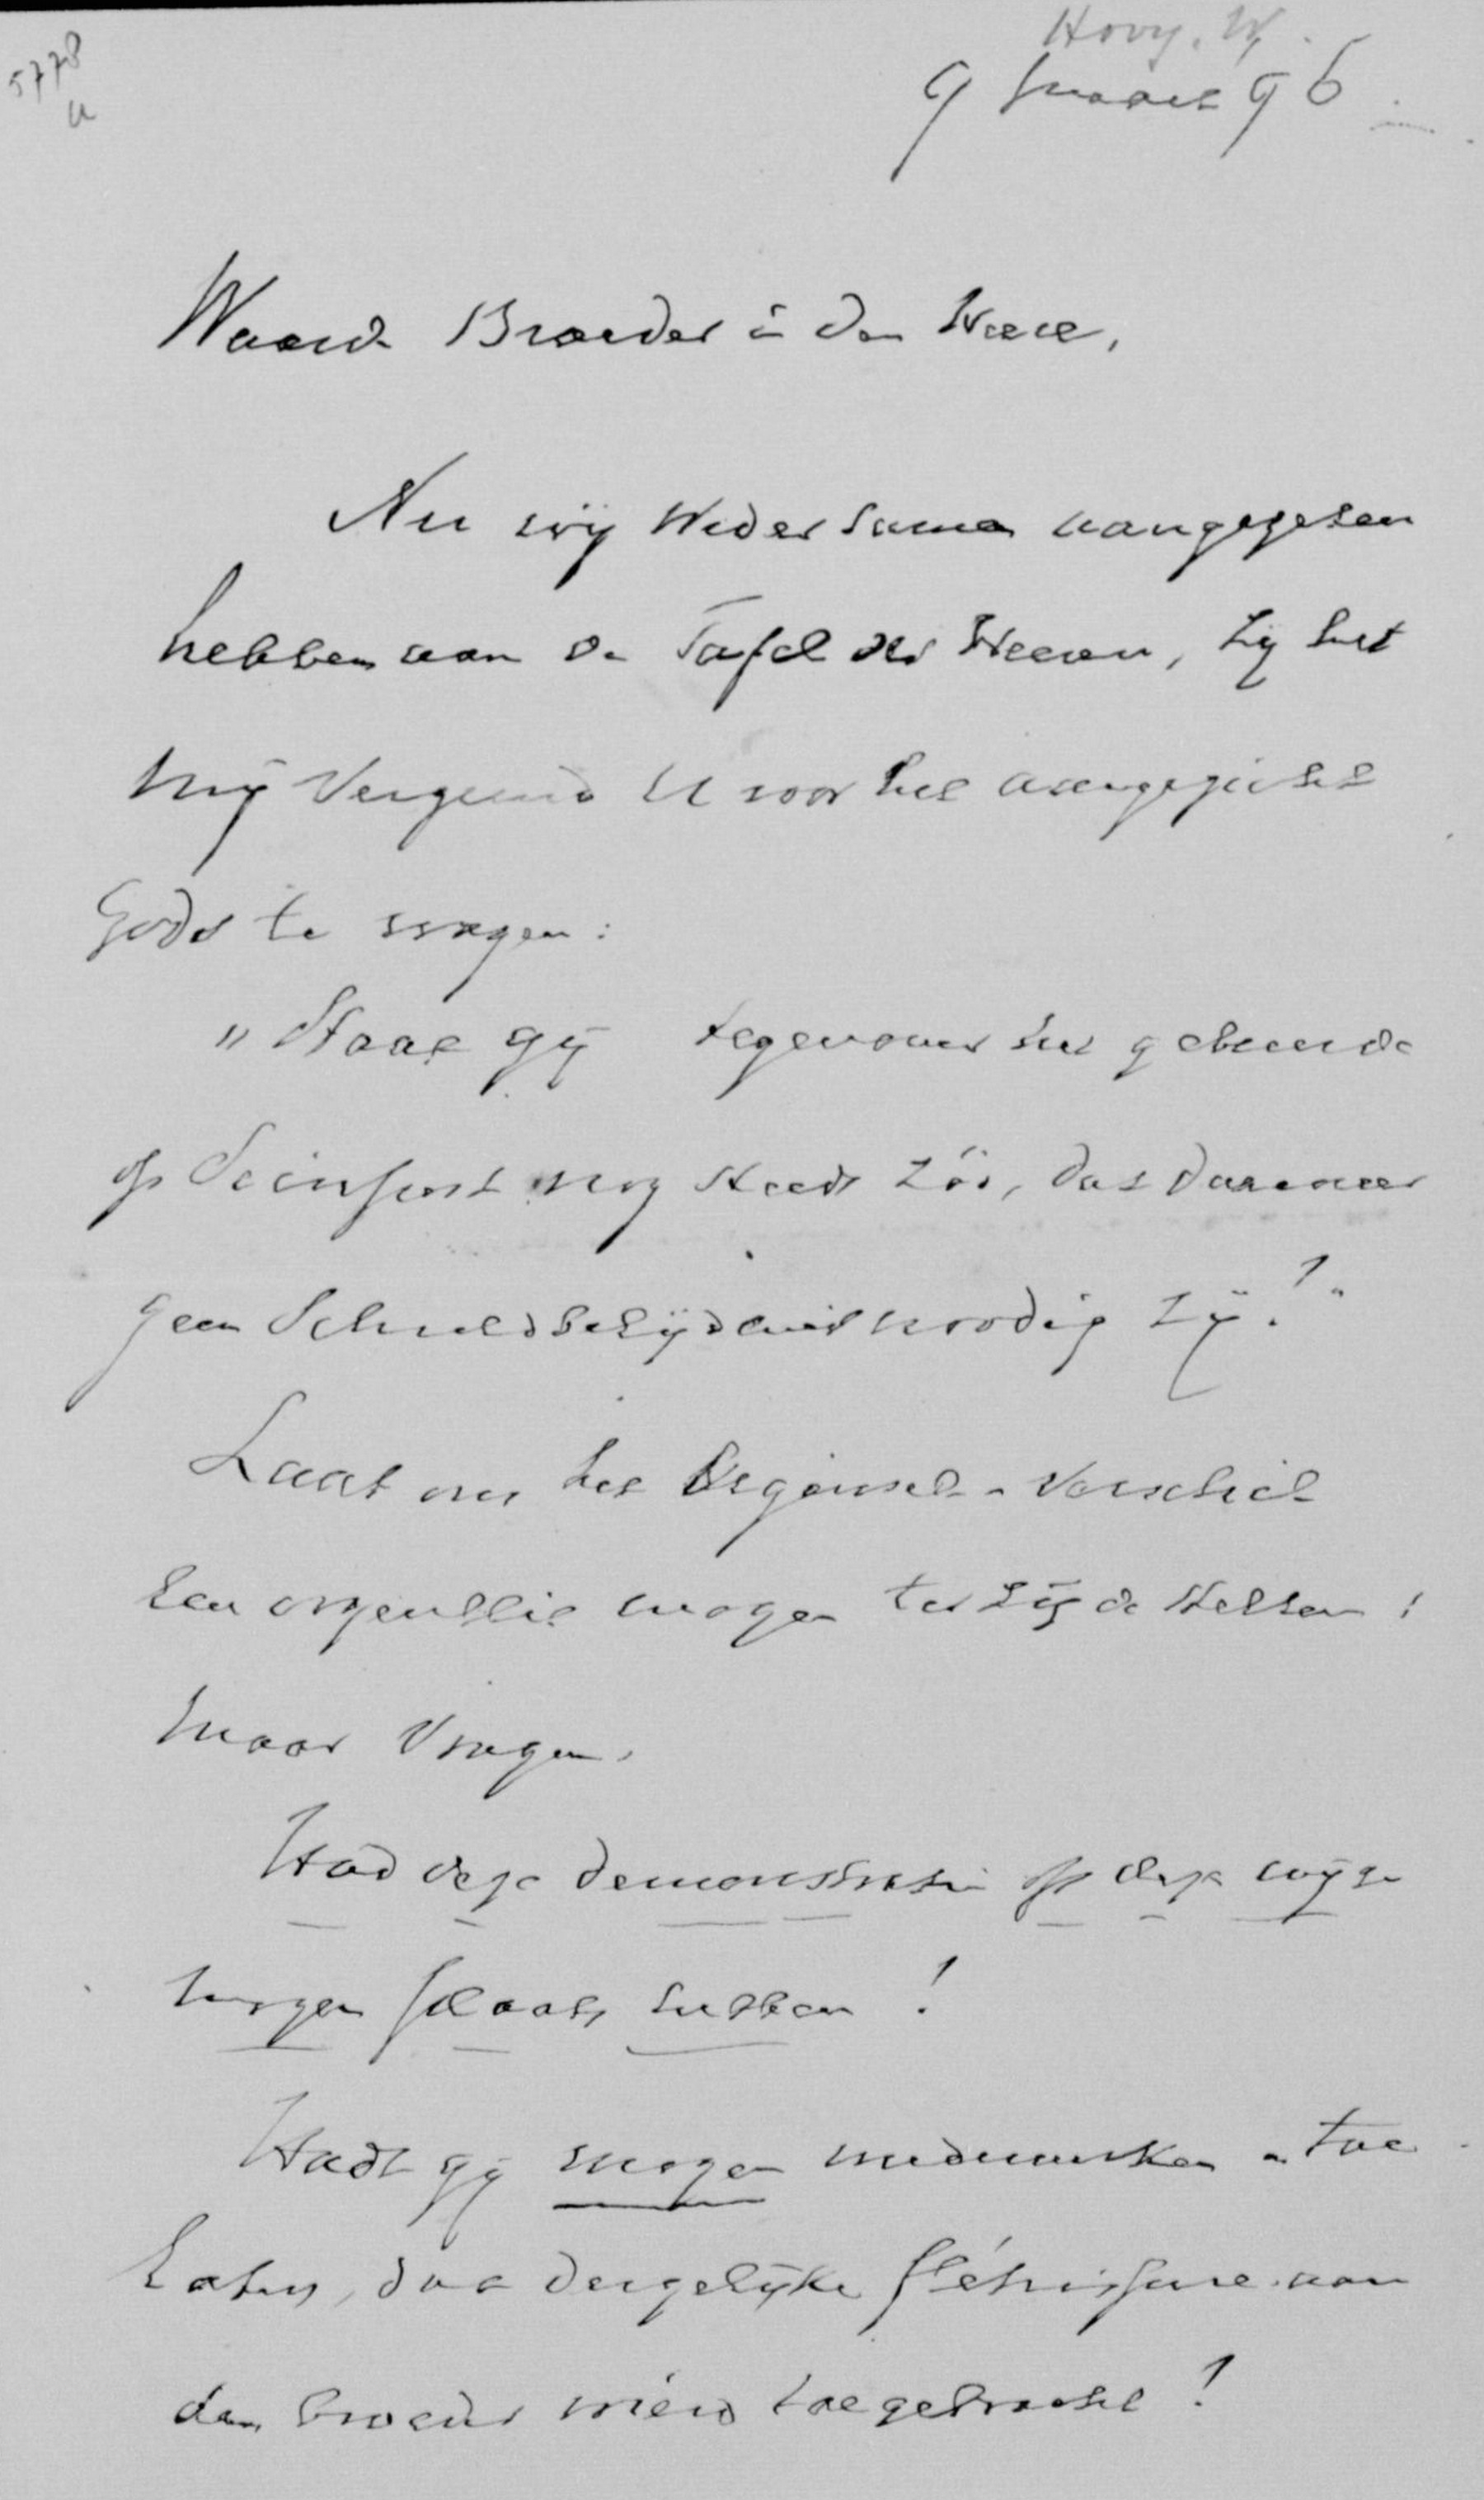 5778
a
Hovy, W.
9 Maart 96.
Waarde Broeder in den Heere,
Nu wij weder samen aangezeten
hebben aan de Tafel des Heeren, zij het
mij vergund U voor het aangezicht
Gods te vragen:
"Staat gij tegenover het gebeurde
op Seinpost nog steeds zóó, dat daarover
geen Schuldbelijdenis noodig zij?"
Laat ons het beginsel-verschil
een oogenblik mogen ter zijde stellen;
maar vragen,
Had deze demonstratie op deze wijze
mogen plaats hebben!
Hadt gij mogen medewerken en toe
laten, dat dergelijke flétrissure aan
den broeder wierd toegebracht!